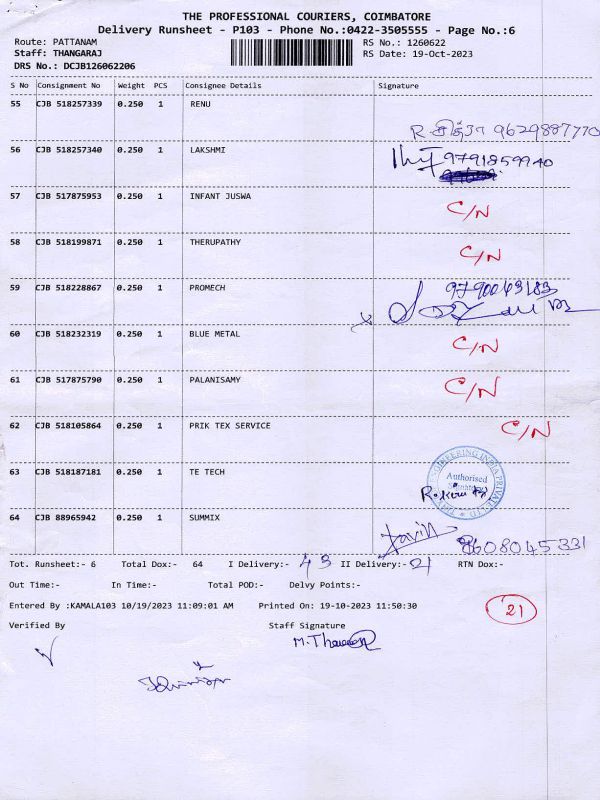 THE PROFESSIONAL COURIERS, COIMBATORE
Delivery Runsheet - P103 - Phone No.:0422-3505555 - Page No.:6
Route: PATTANAM RS No.: 1260622
Staff: THANGARAJ RS Date: 19-Oct-2023
DRS No.: DCJB126062206
S No Consignment No Weight PCS Consignee Details Signature
55 CJB 518257339 0.250 1 RENU
9629887770
56 CJB 518257340 0.250 1 LAKSHMI
9791859940
57 CJB 517875953 0.250 1 INFANT JUSWA C/N
58 CJB 518199871 0.250 1 THERUPATHY C/N
59 CJB 518228867 0.250 1 PROMECH
60 CJB 518232319 0.250 1 BLUE METAL C/N
61 CJB 517875790 0.250 1 PALANISAMY C/N
62 CJB 518105864 0.250 1 PRIK TEX SERVICE C/N
63 CJB 518187181 0.250 1 TE TECH
ENGINEERING INDIA PRIVATE
Authorised
Signatory
64 CJB 88965942 0.250 1 SUMMIX
8608045331
Tot. Runsheet:- 6 Total Dox:- 64 I Delivery:- 43 II Delivery:- 21 RTN Dox:-
Out Time:- In Time:- Total POD:- Delvy Points:-
Entered By :KAMALA103 10/19/2023 11:09:01 AM Printed On: 19-10-2023 11:50:30
21
Verified By Staff Signature